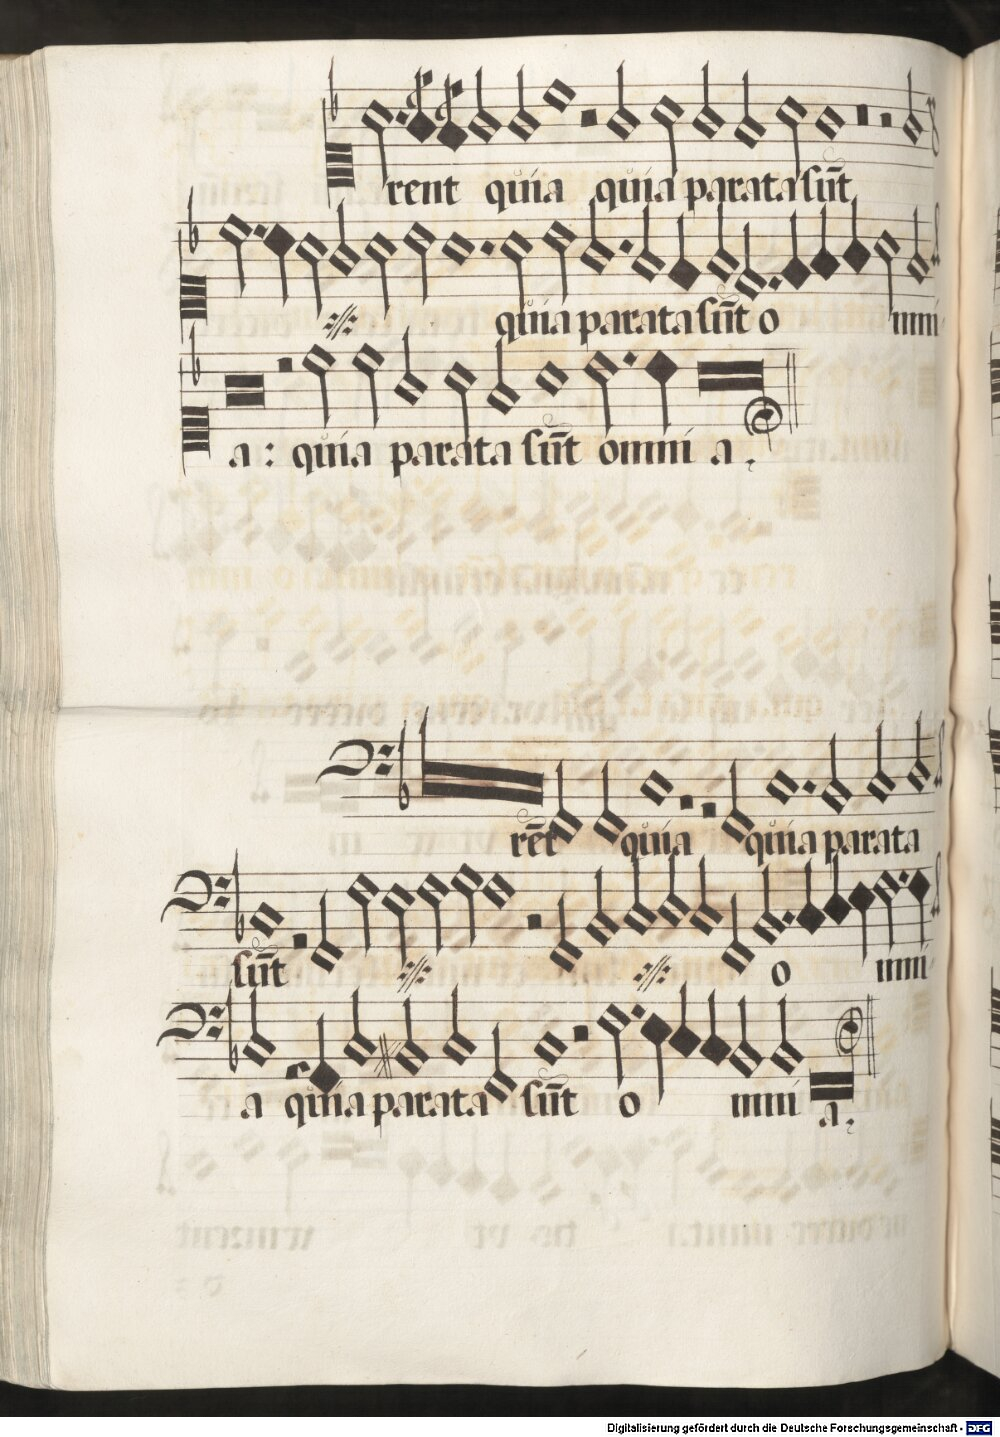 rent quia quia parata sūt
quia parata sūt o mni
a: quia parata sūt omni a.
rēt quia quia parata
sūt o mni
a quia parata sūt o mni a.
Digitalisierung gefördert durch die Deutsche Forschungsgemeinschaft - DFG